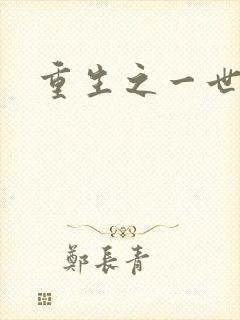 重生之一世
鄭長青